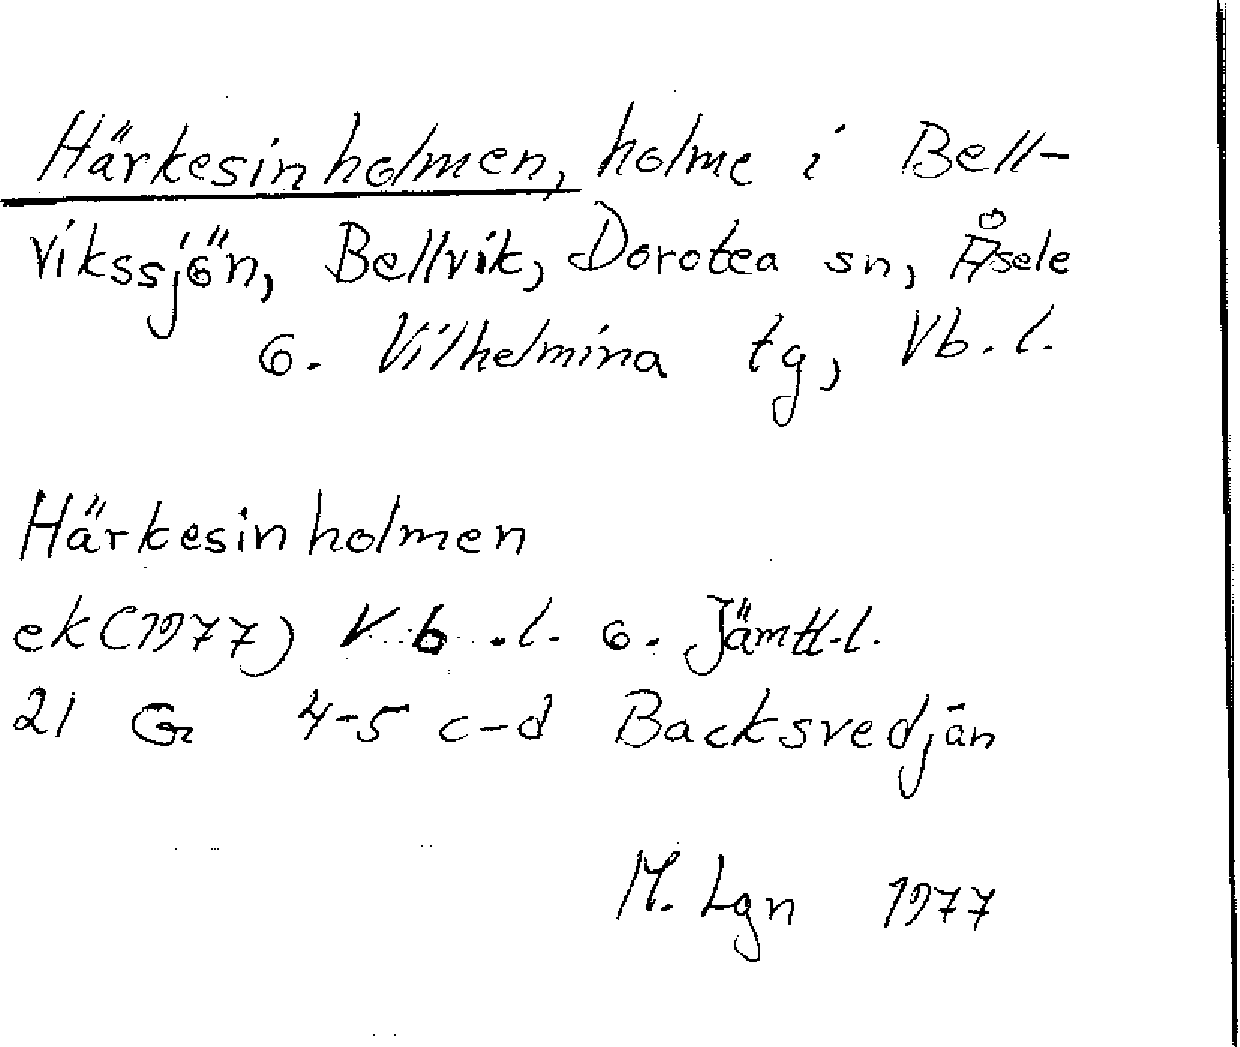 Härkesinholmen, holme i Bell-
vikssjön, Bellvik, Dorotea sn, Åsele
o. Vilhelmina tg, Vb.l.
Härkesinholmen
ek(1977) Vb.l. o. Jämtl.l.
21 G 4-5 c-d Backsvedjån
M. Lgn 1977